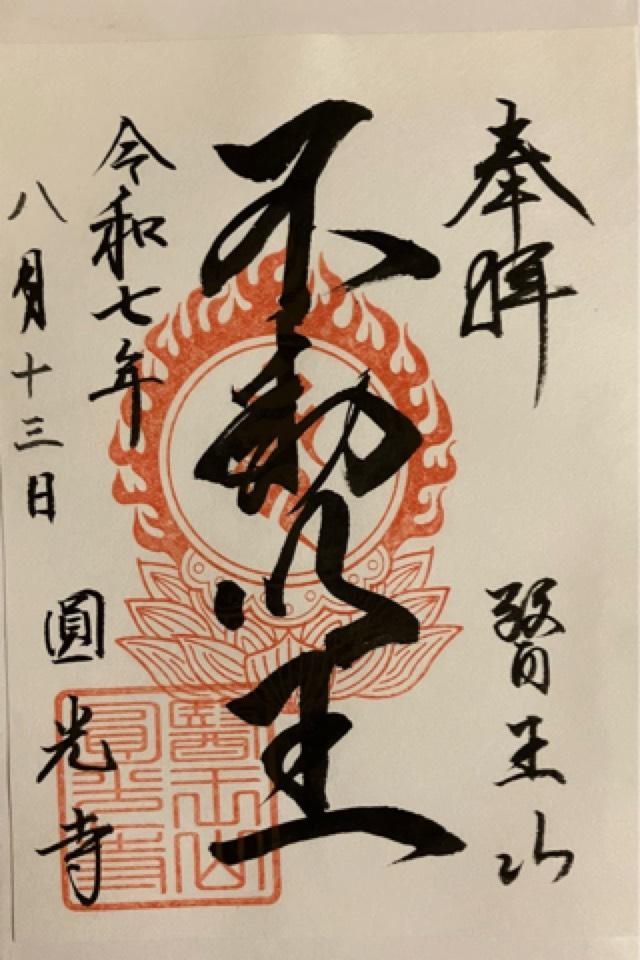 奉拝
醫王山
不動明王
令和七年
八月十三日
圓光寺
醫王山
圓光寺